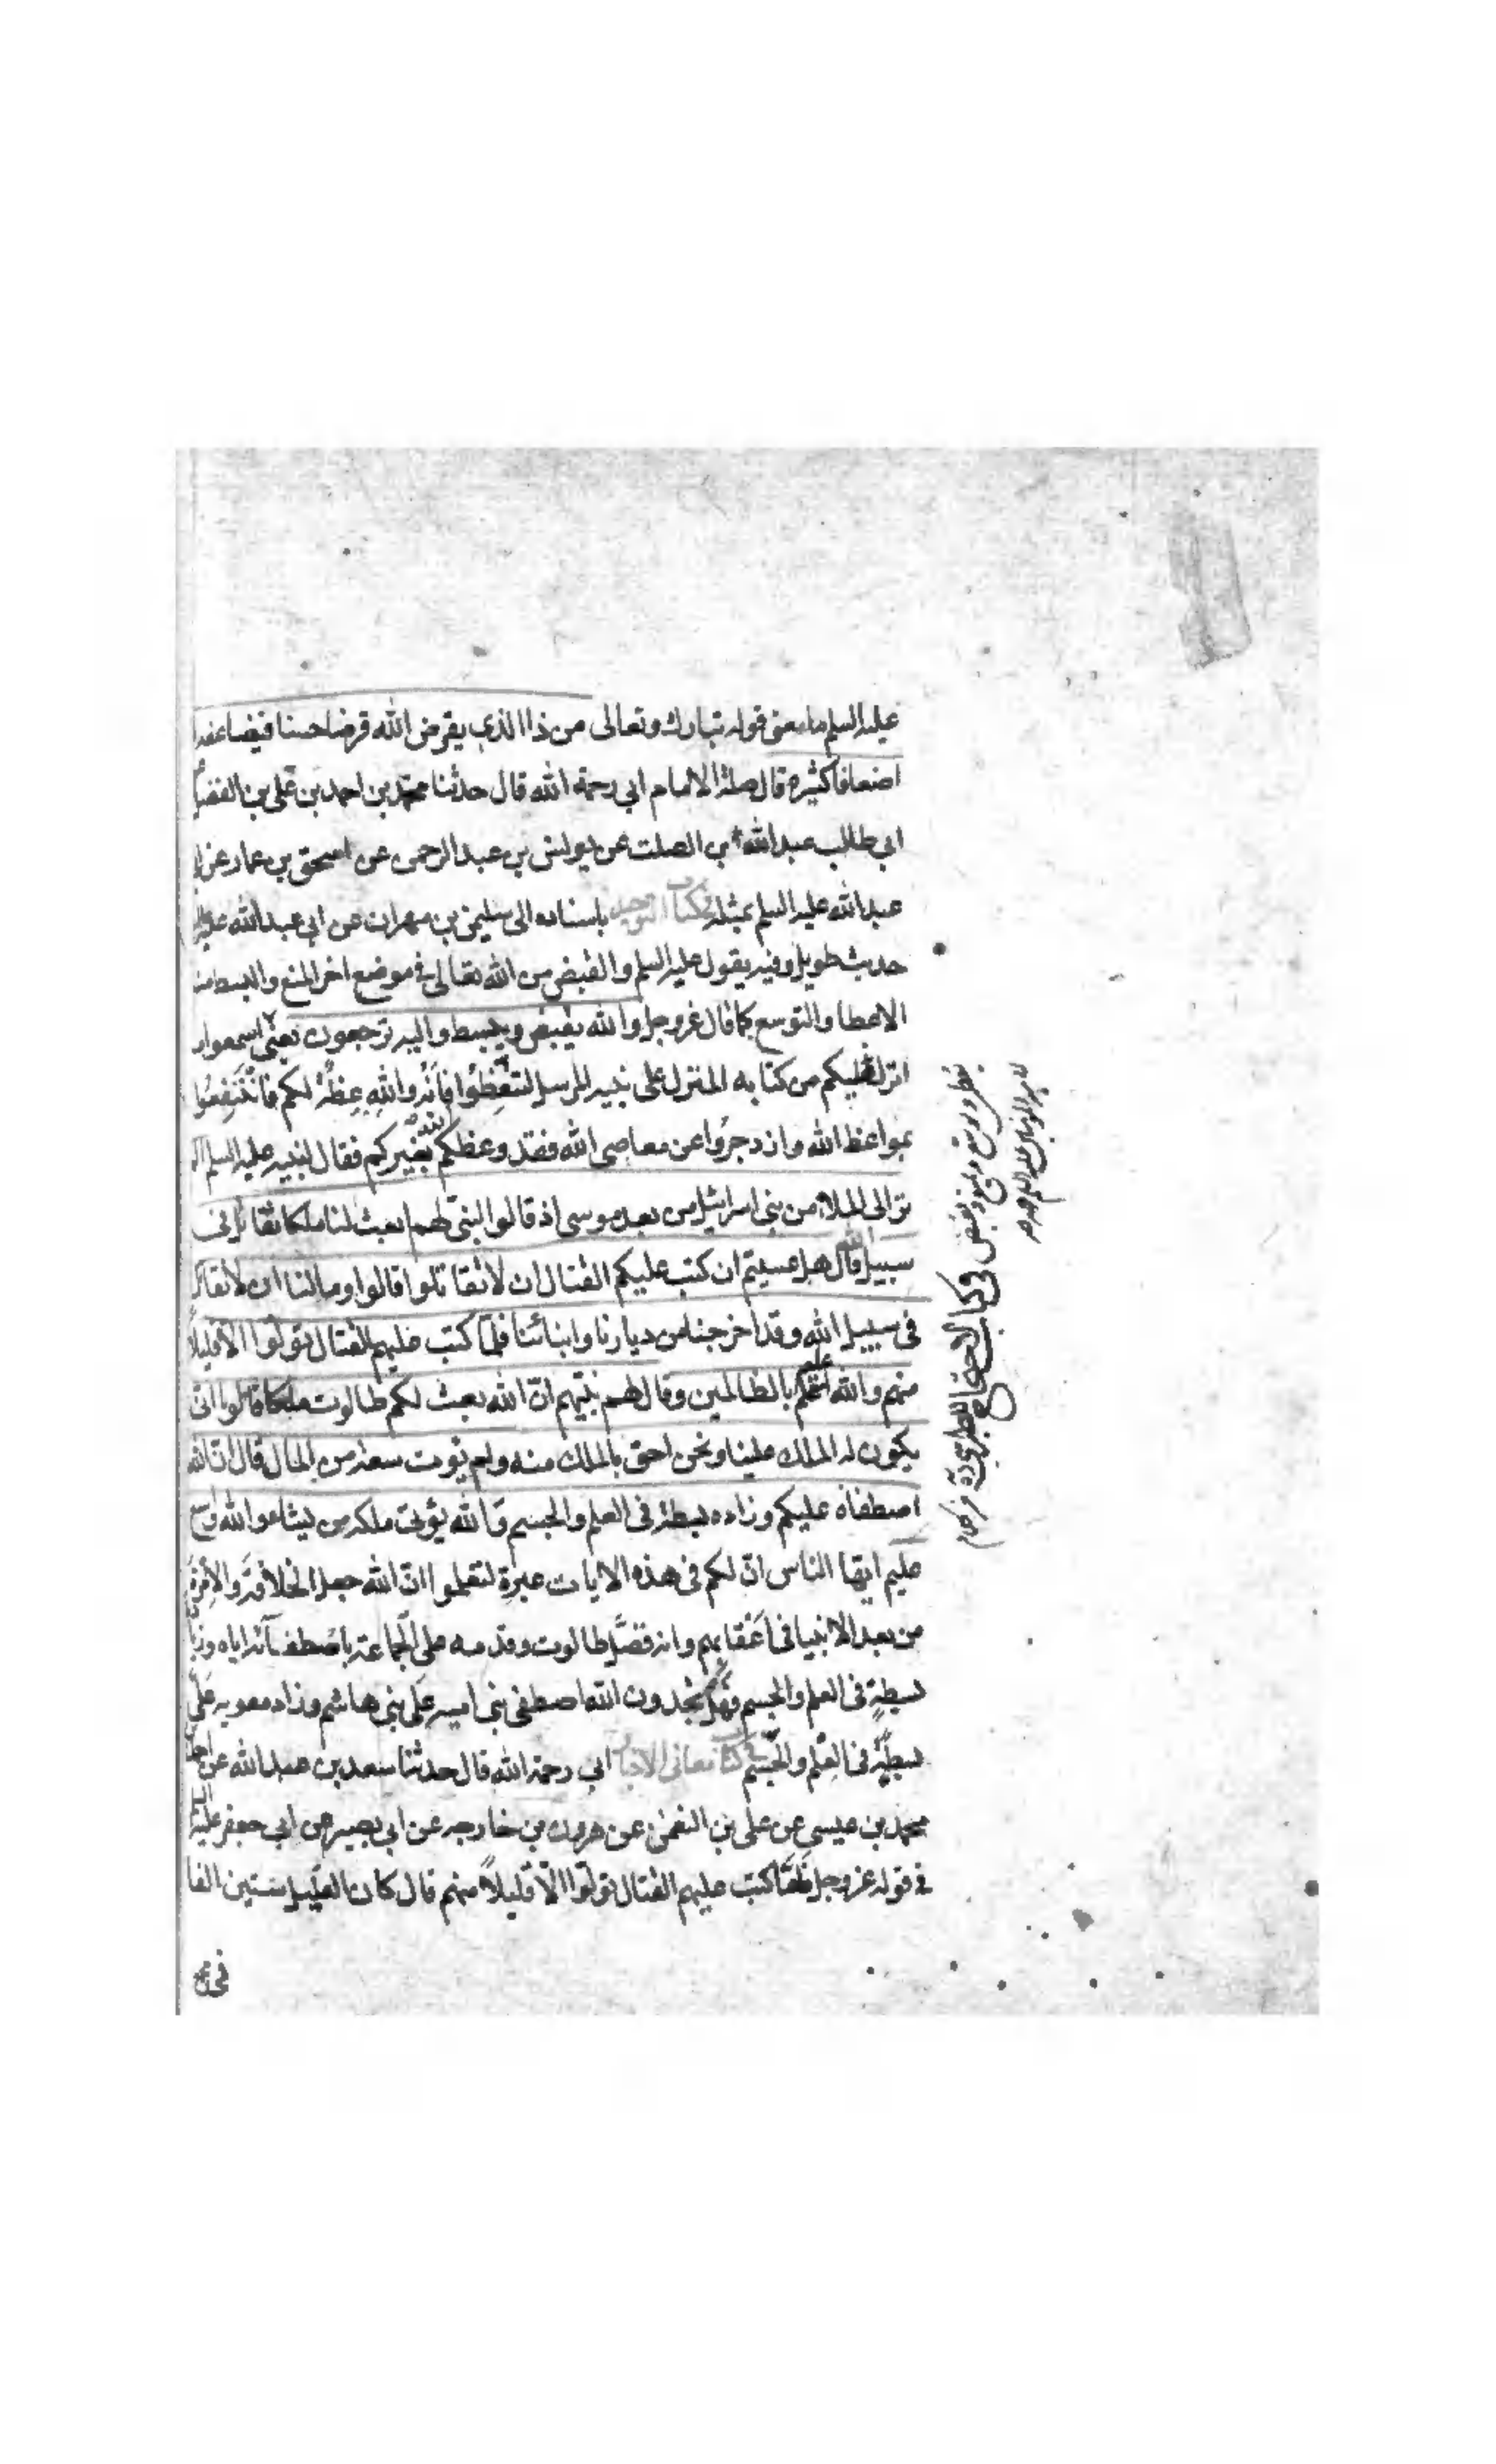 عليه السلم ما معنى قوله تبارك وتعالى من ذا الذي يقرض الله قرضا حسنا فيضاعفه
اضعافا كثيرة قال صلة الامام ابي رحمة الله قال حدثنا محمد بن احمد بن علي بن الفضل
ابي طالب عبد الله بن الصلت عن يونس بن عبد الرحمن عن اسحق بن عمار عن
عبد الله عليه السلم بمثله في كتاب التوحيد باسناده الى سليمن بن مهران عن ابي عبد الله عليه
حديث طويل وفيه يقول عليه السلم والقبض من الله تعالى في موضع اخر المنع والبسط منه
الاعطا والتوسع كما قال عز وجل والله يقبض ويبسط واليه ترجعون يعني اسمعوا
انزل عليكم من كتابه المنزل على نبيه المرسل لتتعظوا فانه والله عظة لكم فانتفعوا
بمواعظ الله وازدجروا عن معاصي الله فقد وعظكم بغيركم فقال لنبيه عليه السلم ا
تر الى الملاء من بني اسرائيل من بعد موسى اذ قالوا لنبي لهم ابعث لنا ملكا نقاتل في
سبيل الله قال هل عسيتم ان كتب عليكم القتال ان لا تقاتلوا قالوا وما لنا ان لا نقاتل
في سبيل الله وقد اخرجنا من ديارنا وابنائنا فلما كتب عليهم القتال تولوا الا قليلاً
منهم والله عليم بالظالمين وقال لهم نبيهم ان الله بعث لكم طالوت ملكا قالوا انى
يكون له الملك علينا ونحن احق بالملك منه ولم يؤت سعة من المال قال ان الله
اصطفاه عليكم وزاده بسطة في العلم والجسم والله يؤتي ملكه من يشاء والله واسع
عليم ايها الناس ان لكم في هذه الايات عبرة لتعلموا ان الله جعل الخلافة والامرة
من بعد الانبيا في اعقابهم وانه فضل طالوت وقدمه على الجماعة باصطفائه اياه وزيا
بسطة في العلم والجسم فهل تجدون الله اصطفى بني امية على بني هاشم وزاد معوية علي
بسطة في العلم والجسم في كتاب معاني الاخبار ابي رحمة الله قال حدثنا سعد بن عبد الله عن احمد
محمد بن عيسى عن علي بن النعمن عن هرون بن خارجه عن ابي بصير عن ابي جعفر عليه
في قوله عز وجل فلما كتب عليهم القتال تولوا الا قليلاً منهم قال كان القليل ستين الفا
في كتاب الاحتجاج للطبرسي